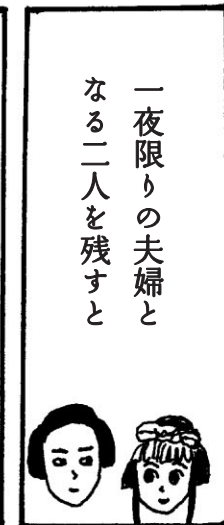 一夜限りの夫婦と
なる二人を残すと